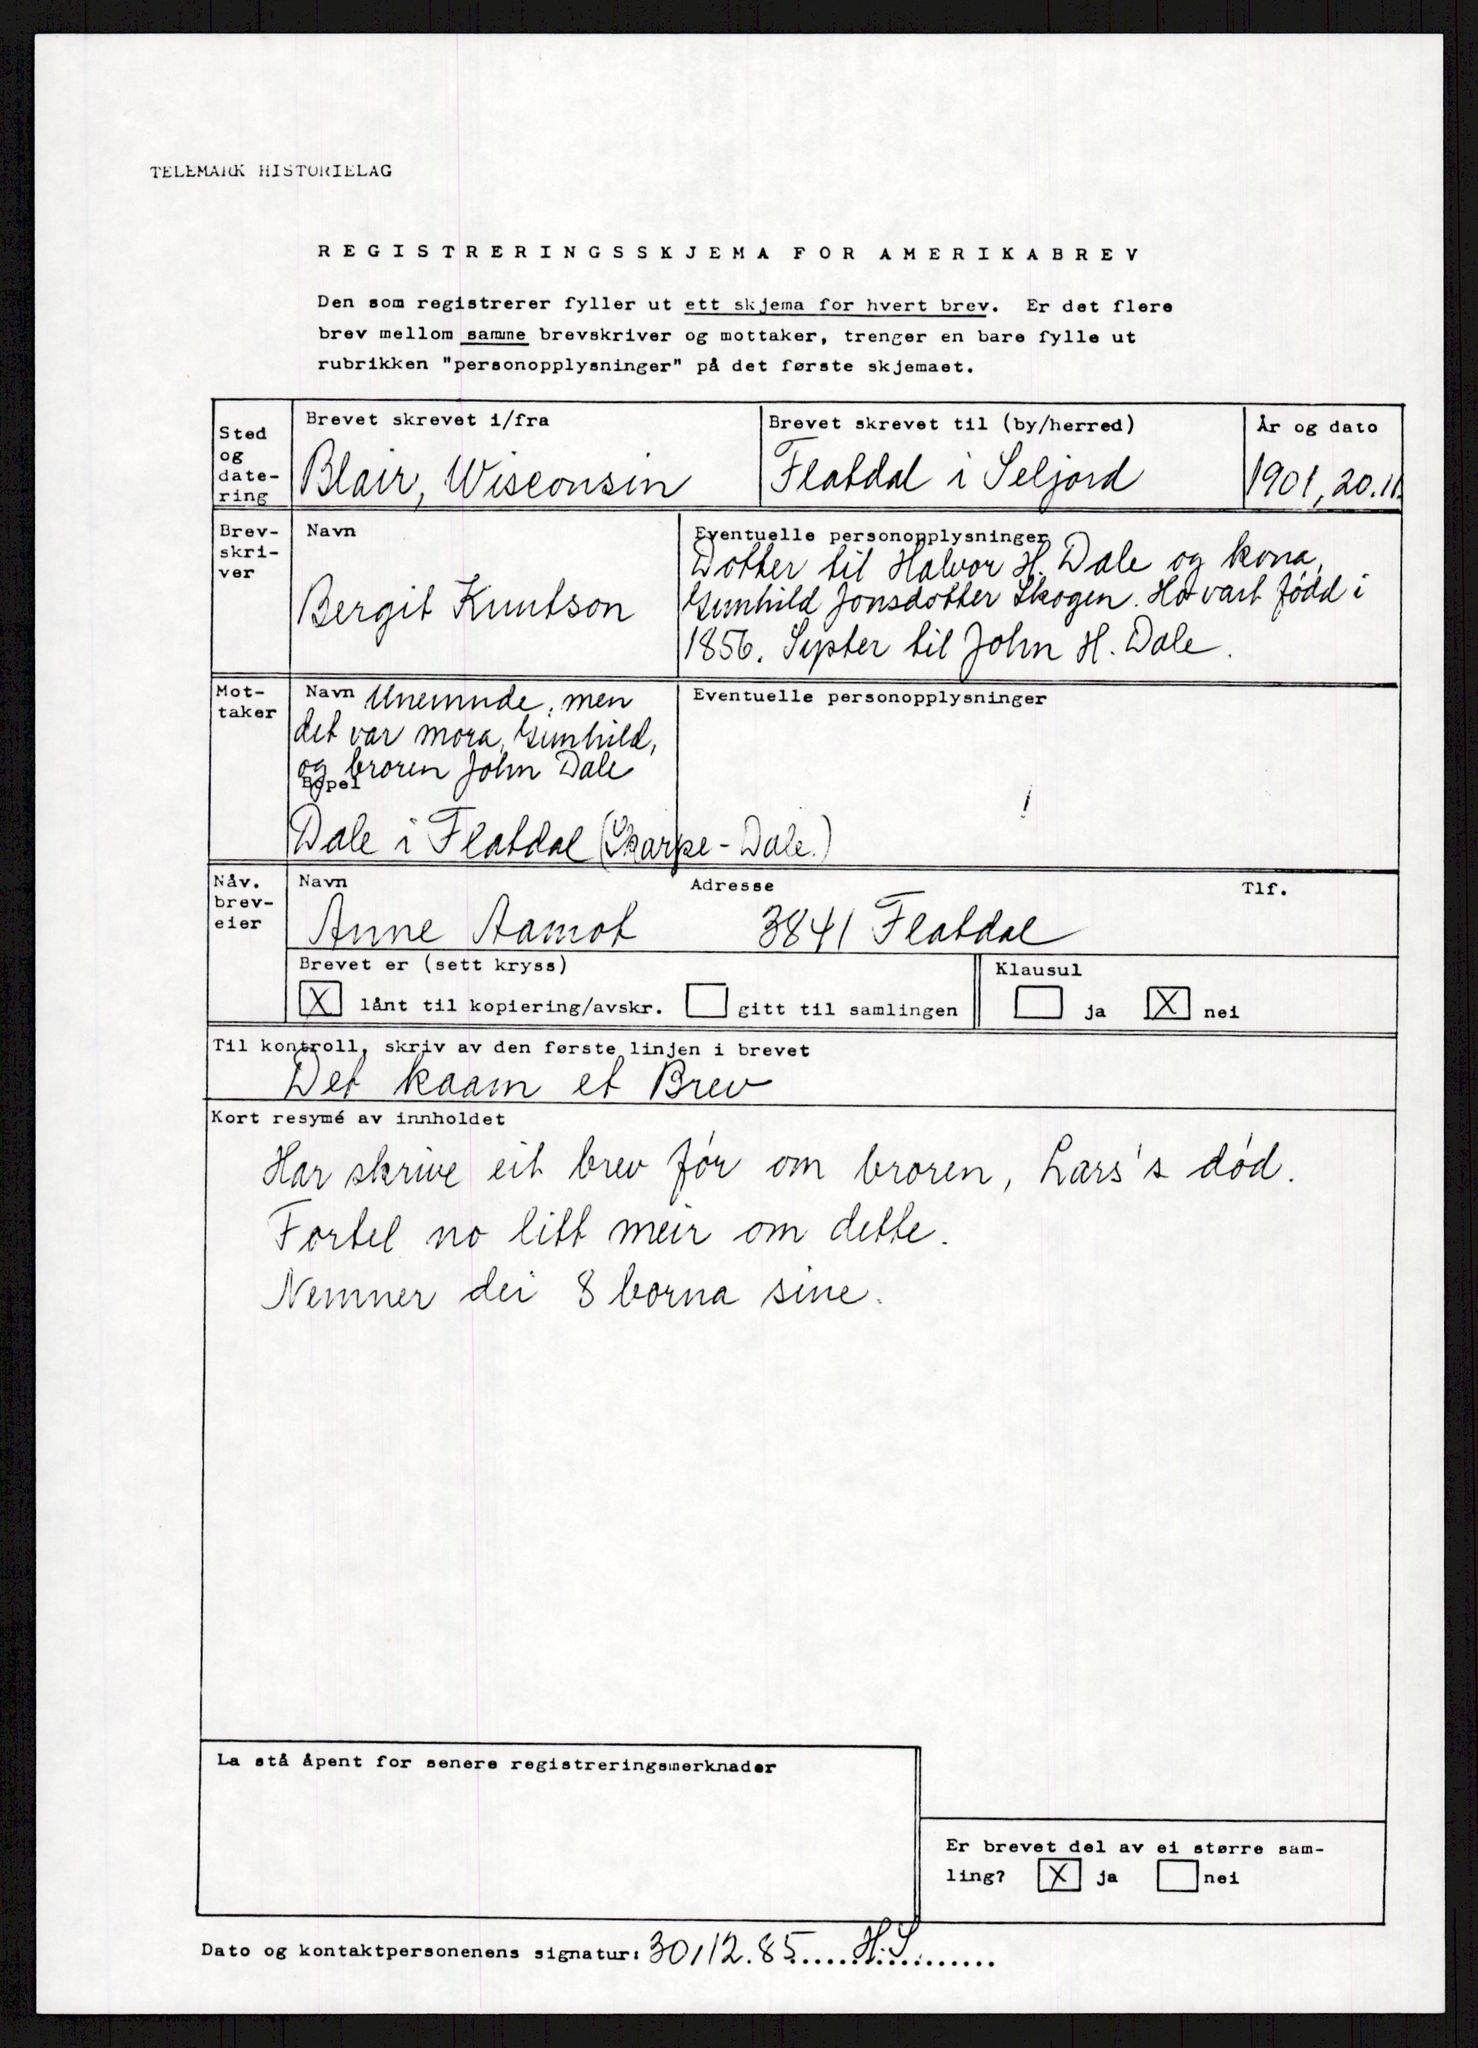 TELEMARK HISTORIELAG
REGISTRERINGSSKJEMA FOR AMERIKABREV
Den som registrerer fyller ut ett skjema for hvert brev. Er det flere
brev mellom samme brevskriver og mottaker, trenger en bare fylle ut
rubrikken "personopplysninger" på det første skjemaet.
Sted
og
date-
ring
Brevet skrevet i/fra
Blair, Wisconsin
Brevet skrevet til (by/herred)
Flatdal i Seljord
År og dato
1901, 20.11.
Brev-
skri-
ver
Navn
Bergit Knutson
Eventuelle personopplysninger
Dotter til Halvor H. Dale og kona,
Gunhild Jonsdotter Skogen. Ho vart fødd i
1856. Syster til John H. Dale.
Mot-
taker
Navn Unemnde, men
det var mora, Gunhild,
og broren John Dale
Bopel
Dale i Flatdal (Skarpe-Dale.)
Eventuelle personopplysninger
Nåv.
brev-
eier
Navn
Anne Aamot
Adresse
3841 Flatdal
Tlf.
Brevet er (sett kryss)
X lånt til kopiering/avskr. gitt til samlingen
Klausul
ja X nei
Til kontroll, skriv av den første linjen i brevet
Det kaam et Brev
Kort resymé av innholdet
Har skrive eit brev før om broren, Lars's død.
Fortel no litt meir om dette.
Nemner dei 8 borna sine.
La stå åpent for senere registreringsmerknader
Er brevet del av ei større sam-
ling? X ja nei
Dato og kontaktpersonenens signatur: 30/12.85 H.S.